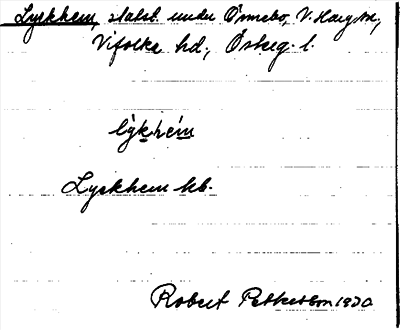 Lyckhem, slähst. under Önnebo, V. Harg sn,
Vifolka hd., Österg. l.
lýkhém
Lyckhem kb.
Robert Petterson 1920